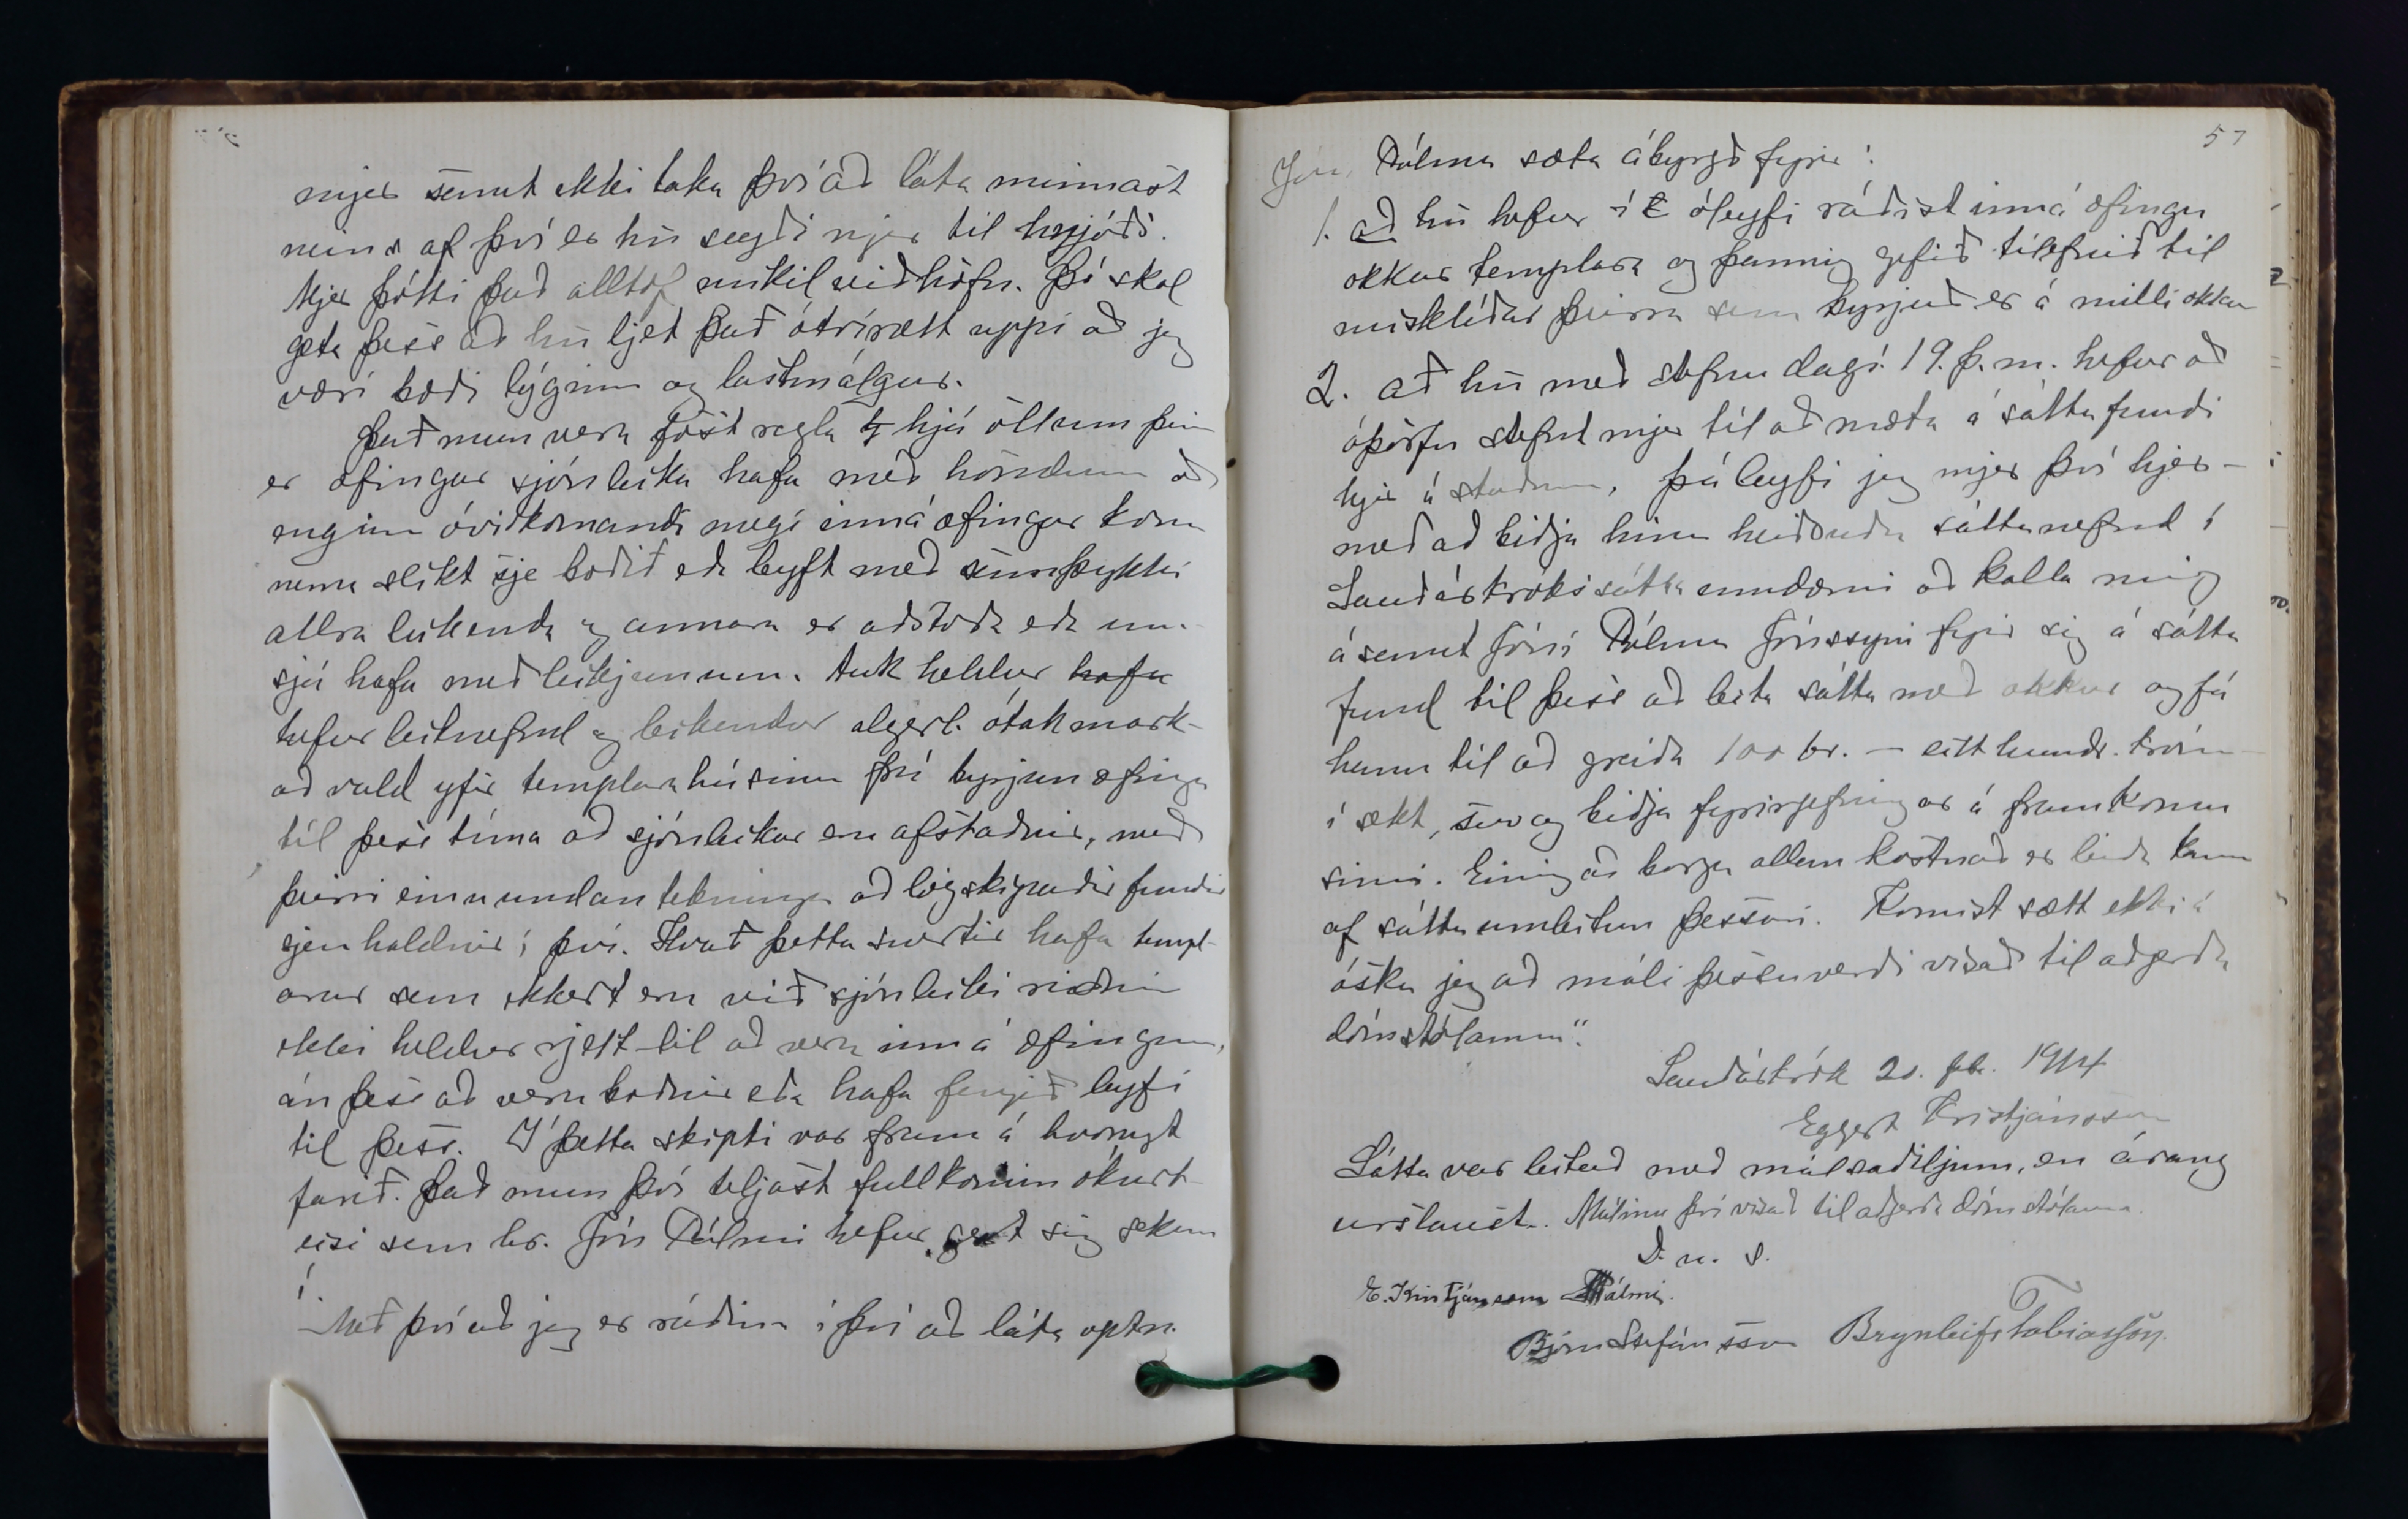 mjer samt ekki taka því að láta minnast
neins af því er hn sagði mjer til hnjóðs.
Mjer þótti það alltof mikil viðhöfn. Þó skal
geta þess að hn ljet það ótvírætt uppi að jeg
væri bæði lýginn og lastmálgur.
Það mun vera föst regla hjá öllum þeim
er æfingar sjónleika hafa með höndum að
enginn óviðkomandi megi inná æfingar koma
nema slíkt sje boðið eða leyft með samþykki
allra leikenda og annara er aðstoða eða um-
sjá hafa með leikjunum. Auk heldur hafa
hefur leiknefnd og leikendur algerl. ótakmark-
að vald yfir templarahúsinu frá byrjun æfinga
til þess tíma að sjónleikar eru afstaðnir, með
þeirri einu undantekningu að lögskipaðir fundir
sjeu haldnir í því. Hvað þetta snertir hafa templ-
arar sem ekkert eru við sjónleiki riðnir
ekki heldur rjett til að vera inná æfingum,
án þess að vera boðnir eða hafa fengið leyfi
til þess. Í þetta skipti var fram á hvorugt
farið. Það mun því teljast fullkomin ókurt-
eisi sem hr. Jón Pálmi hefur gert sig sekan
í.
Með því að jeg er ráðinn í því að láta optn.
57
Jón Pálma sæta ábyrgð fyrir:
1. að hn hefur í óleyfi ráðist inná æfingu
okkar templara og þannig gefið tilefnið til
misklíðar þeirra sem byrjuð er á milli okkar
2. að hn með stefnu dags. 19. þ.m. hefur að
óþörfu stefnt mjer til að mæta á sáttafundi
hjer á staðnum, þá leyfi jeg mjer því hjer-
með að biðja hina heiðruðu sáttanefnd í
Sauðárkrókssáttaumdæmi að kalla mig
ásamt Jóni Pálma Jónssyni fyrir sig á sátta
fund til þess að leita sátta með okkur og fá
hann til að greiða 100 kr. - eitt hundr. krón-
í sekt, svo og biðja fyrirgefningar á framkomu
sinni. Einnig að borga allan kostnað er leiða kann
af sáttaumleitun þessari. Komist sætt ekki á
óska jeg að máli þessu verði vísað til aðgerða
dómstólanna".
Sauðárkrók 20. feb. 1914
Eggert Kristjánsson
Sátta var leitað með málsaðiljum, en árang
urslaust. Málinu því vísað til aðgerða dómstólanna.
D. u. s.
E. Kristjánsson Pálmi.
Björn Stefánsson Brynleifr Tobiasson